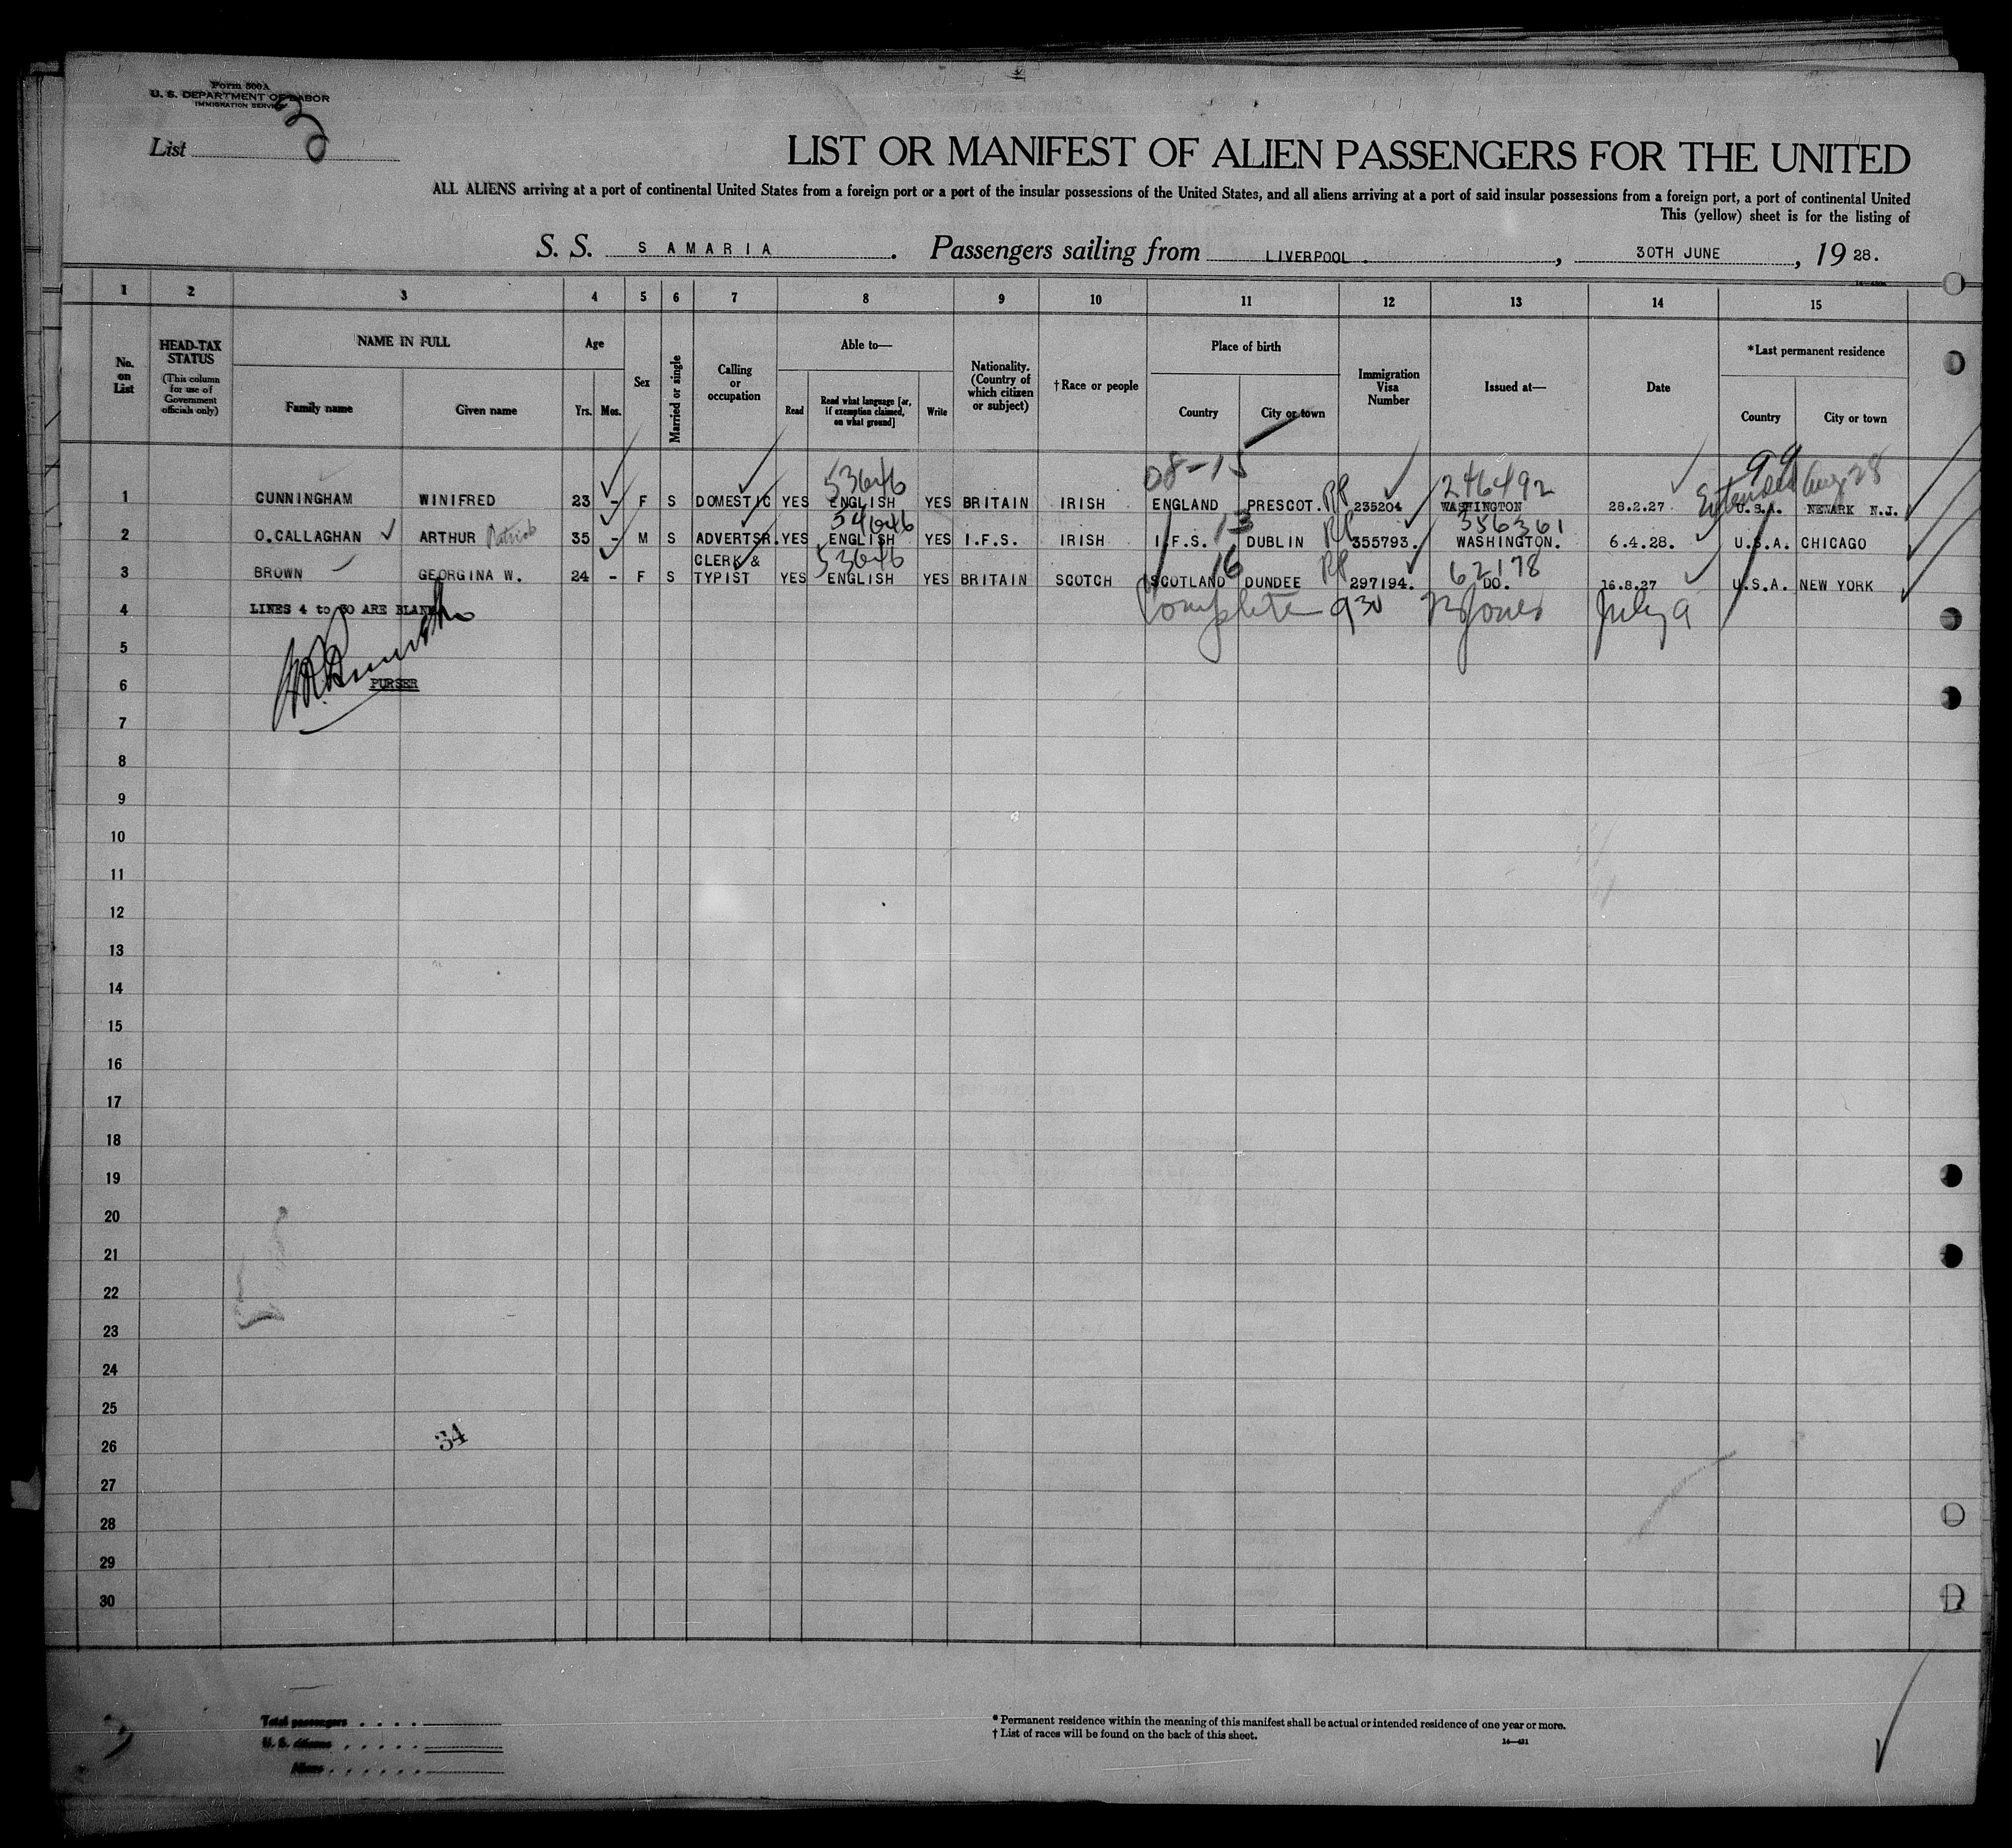 Form 500A
U. S. DEPARTMENT OF LABOR
IMMIGRATION SERVICE
List 3
LIST OR MANIFEST OF ALIEN PASSENGERS FOR THE UNITED
ALL ALIENS arriving at a port of continental United States from a foreign port or a port of the insular possessions of the United States, and all aliens arriving at a port of said insular possessions from a foreign port, a port of continental United
This (yellow) sheet is for the listing of
S. S. SAMARIA . Passengers sailing from LIVERPOOL. , 30TH JUNE , 19 28.
1 2 3 4 5 6 7 8 9 10 11 12 13 14 15
No. on List
HEAD-TAX STATUS
(This column for use of Government officials only)
NAME IN FULL
Family name Given name
Age
Yrs. Mos.
Sex
Married or single
Calling or occupation
Able to—
Read
Read what language [or, if exemption claimed, on what ground]
Write
Nationality. (Country of which citizen or subject)
†Race or people
Place of birth
Country City or town
Immigration Visa Number
Issued at—
Date
*Last permanent residence
Country City or town
08-15 99
53646 246492 Extended Aug 28
1 CUNNINGHAM WINIFRED 23 - F S DOMESTIC YES ENGLISH YES BRITAIN IRISH ENGLAND PRESCOT. RP 235204 WASHINGTON 28.2.27 U.S.A. NEWARK N.J.
54646 13 356361
2 O.CALLAGHAN ARTHUR Patrick 35 - M S ADVERTSR. YES ENGLISH YES I.F.S. IRISH I.F.S. DUBLIN RP 355793. WASHINGTON. 6.4.28. U.S.A. CHICAGO
53646 16 62178
3 BROWN GEORGINA W. 24 - F S CLERK & TYPIST YES ENGLISH YES BRITAIN SCOTCH SCOTLAND DUNDEE RP 297194. DO. 16.8.27 U.S.A. NEW YORK
4 LINES 4 to 30 ARE BLANK Complete 930 Jones July 9
5
6 PURSER
7
8
9
10
11
12
13
14
15
16
17
18
19
20
21
22
23
24
25
26 34
27
28
29
30
Total passengers
U. S. citizens
Aliens
* Permanent residence within the meaning of this manifest shall be actual or intended residence of one year or more.
† List of races will be found on the back of this sheet.
14—421